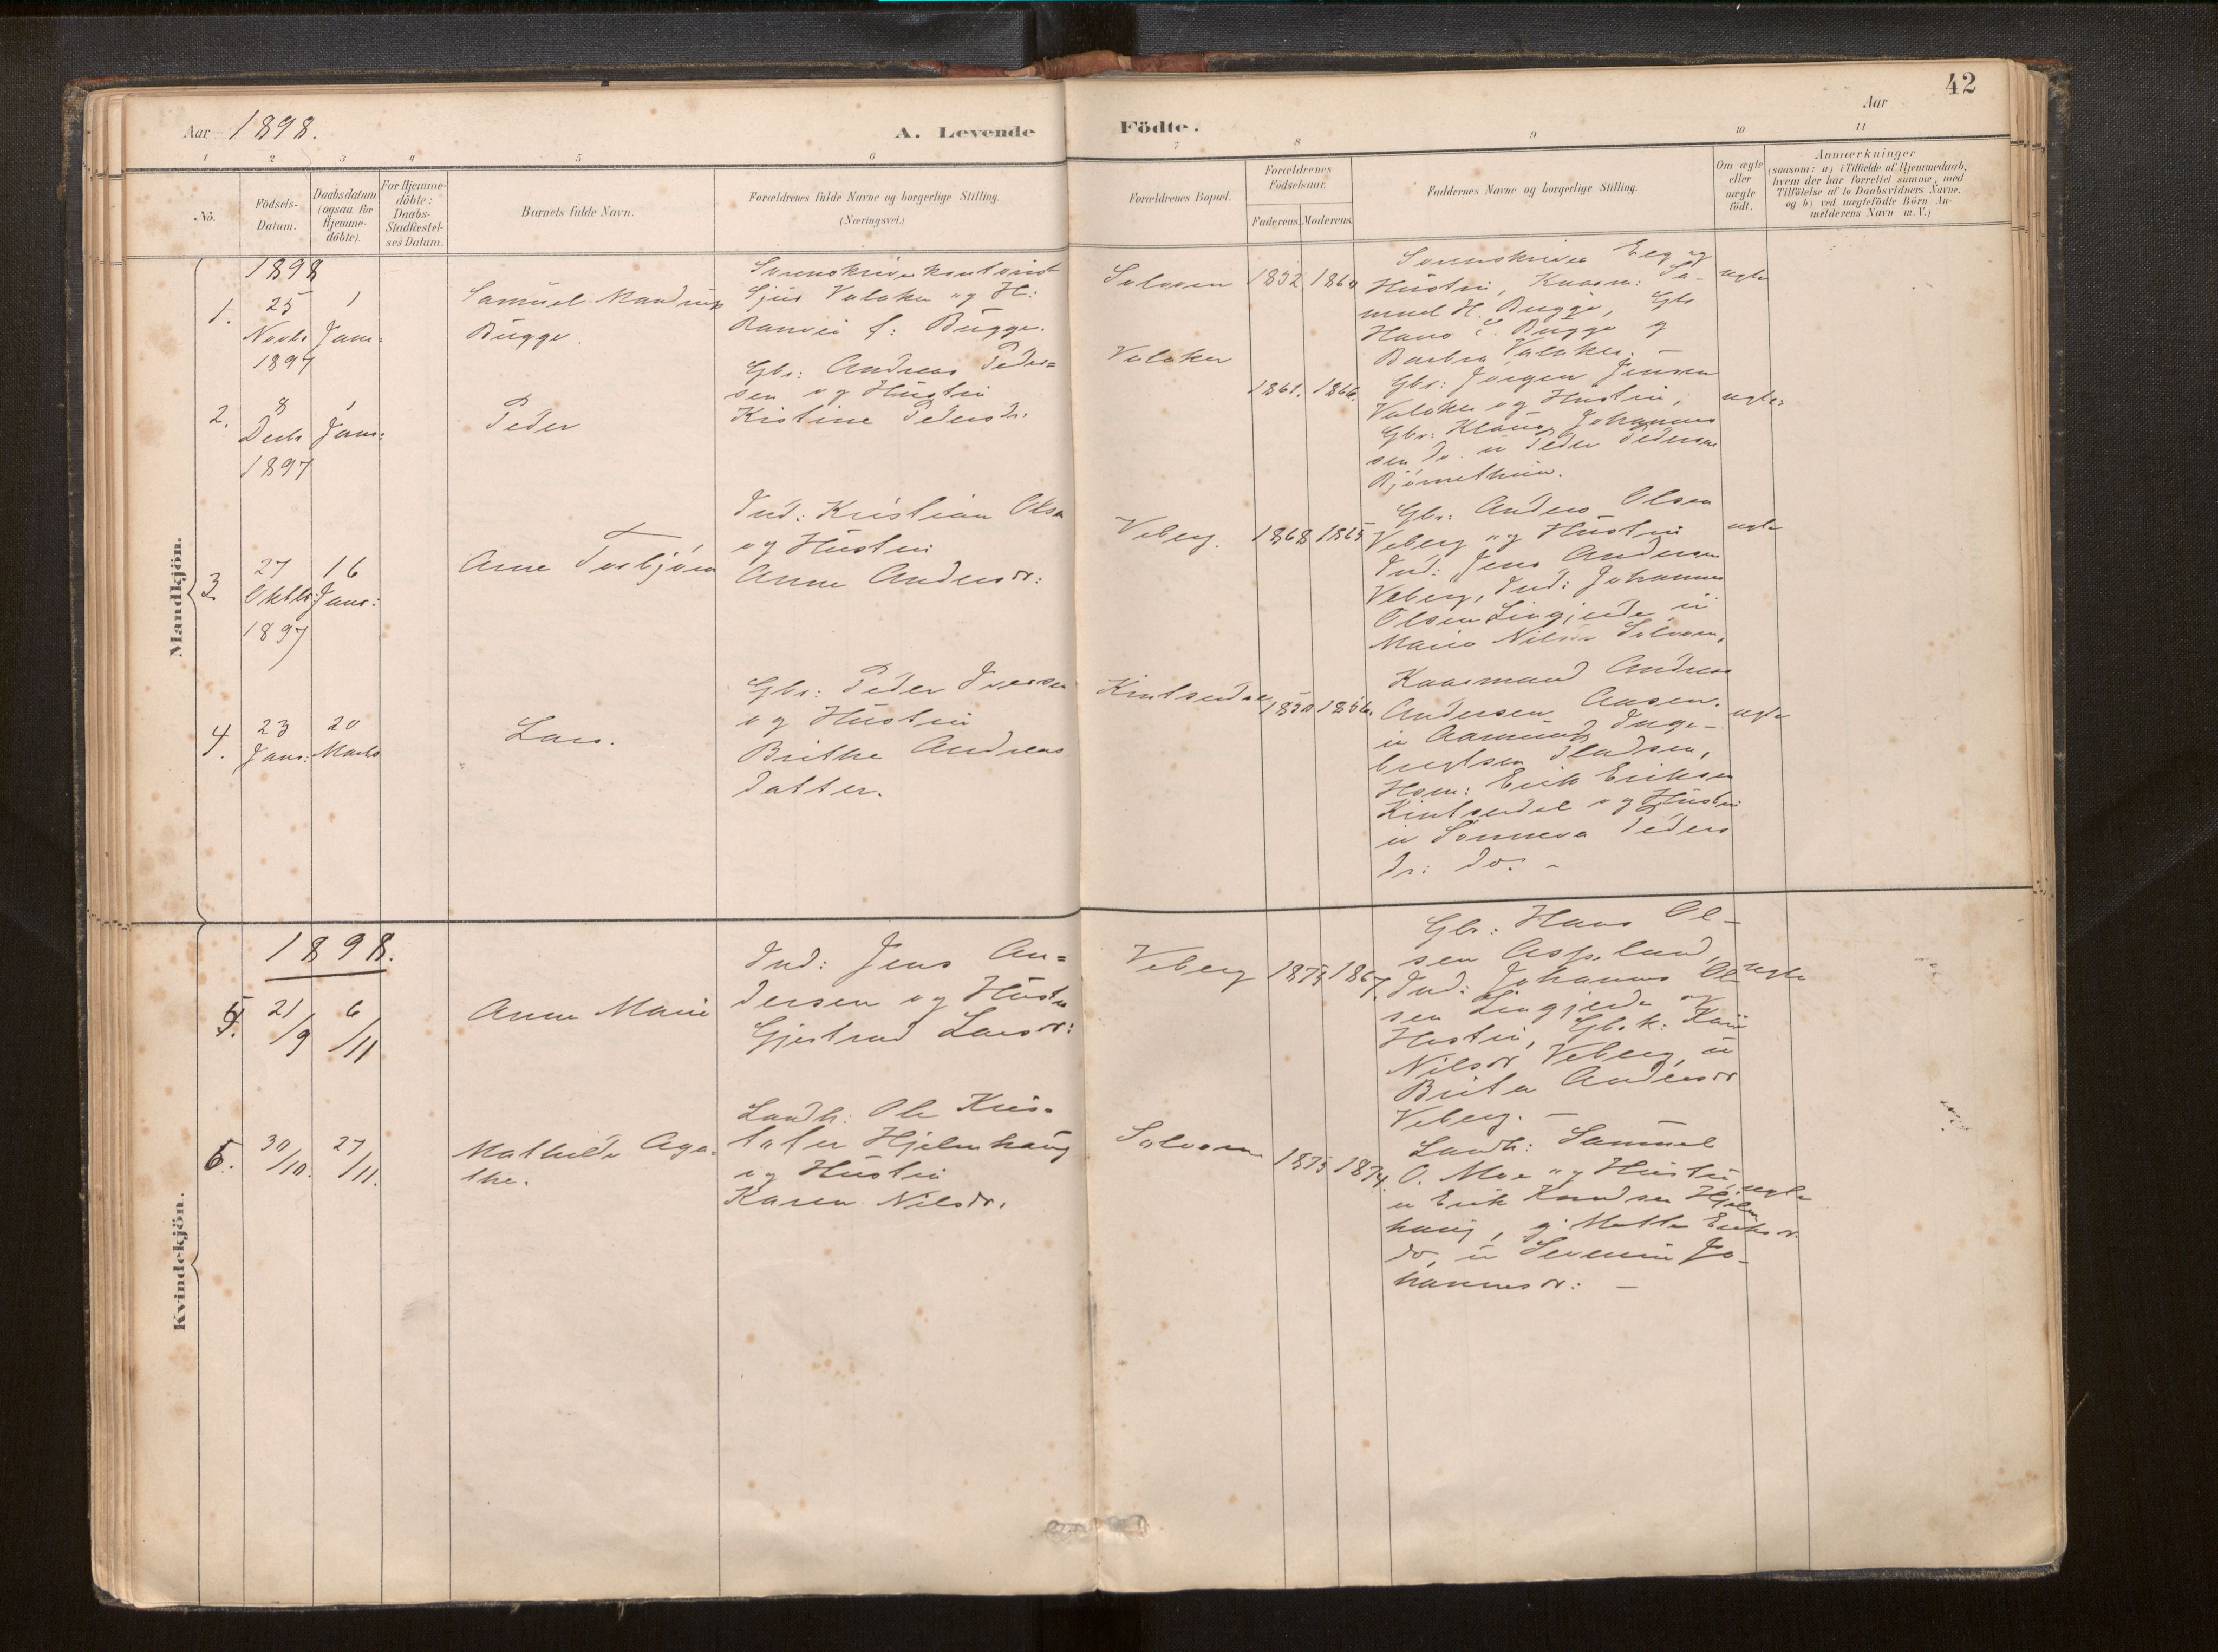 42
Aar 1898.
A. Levende Födte.
Aar
1 2 3 4 5 6 7 8 9 10 11
No.
Födsels-
Datum.
Daabsdatum
(ogsaa for
Hjemme-
döbte).
For Hjemme-
döbte:
Daabs-
Stadfæstel-
ses Datum.
Barnets fulde Navn.
Forældrenes fulde Navne og borgerlige Stilling.
(Næringsvei.)
Forældrenes Bopæl.
Forældrenes
Födselsaar.
Faderens. Moderens.
Faddernes Navne og borgerlige Stilling.
Om ægte
eller
uægte
födt.
Anmærkninger
(saasom: a) i Tilfælde af Hjemmedaab,
hvem der har forrettet samme, med
Tilföielse af to Daabsvidners Navne.
og b) ved uægtefödte Börn An-
melderens Navn m. V.)
Mandkjön.
1898
1.
25
Novbr
1897
1
Janr:
Samuel Mandrup
Bugge.
Sorenskriverkontorist
Sjur Valaker og H:
Ranvei f: Bugge.
Solvorn
1852 1860
Sorenskriver Eeg og
Hustru, Kaarm: Sa-
muel H. Bugge, Gbr
Hans S. Bugge og
Barbra Valaker. —
ægte
2.
8
Decbr
1897
1
Janr:
Peder
Gbr: Andreas Peder=
sen og Hustru
Kistine Pedersdr:
Valaker
1861. 1866.
Gbr: Jørgen Jensen
Valaker og Hustru,
Gbr: Klaus Johannes
sen do. u Peder Pedersen
Bjørnethun.
ægte:
3
27
Oktbr:
1897
16
Janr:
Arne Torbjørn
Ind: Kristian Olsen
og Hustru
Anna Andersdr:
Veberg.
1868 1865
Gbr: Anders Olsen
Veberg og Hustru
Ind: Jens Andersen
Veberg, Ind: Johannes
Olsen Lingjerde u
Marie Nilsdr Solvorn.
ægte
4.
23
Janr:
20
Marts
Lars.
Gbr: Peder Iversen
og Hustru
Brithe Andreas
datter.
Kinserdal
1850 1856.
Kaarmand Andreas
Andersen Aasen.
u Aamund Inge-
brigtsen Pladsen,
Hsm: Erik Eriksen
Kinserdal og Hustru
u Synneva Peders
dr: do. -
ægte
Kvindekjön.
1898.
5.
21/9
6/11
Anna Marie
Ind: Jens An=
dersen og Hustru
Gjertrud Larsdr:
Veberg
1873 1867.
Gbr: Hans Ol-
sen Asplund,
Ind: Johannes Ol-
sen Lingjerde og
Hustru, Gbrk: Kari
Nilsdr Veberg, u
Brita Andersdr
Veberg. —
ægte
6.
30/10.
27/11.
Mathilde Aga-
the.
Landh: Ole Kris-
tofer Hjelmhaug
og Hustru
Karen Nilsdr.
Solvorn
1875 1874.
Landh: Samuel
O. Moe og Hustru,
u Erik Knudsen Hjelm
haug, g. Mette Eriksdr.
do, u Severine Jo-
hannesdr: —
ægte